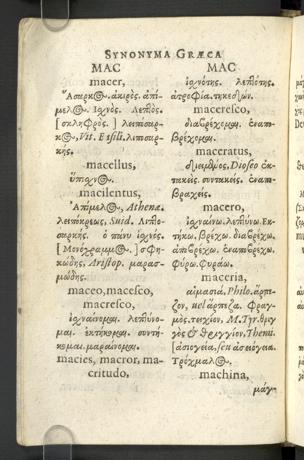 SYNONYMA GRÆCA
MAC
macer,
Ἄσαρκος. ἀκιρὸς. ἀπί-
μελος. ἰσχνὸς. λεπτὸς.
[σκληφρὸς.] λειπόσαρ-
κος, Vit. Eſili. λιποσαρ-
κὴς.
macellus,
ὕπισχνος.
macilentus,
Ἀπίμελος, Athenæ.
λειπόκρεως, Suid. λιπο-
σαρκής. ὁ πάνυ ἰσχνός.
[Μονόγραμμος] σφη-
κώδης, Ariſtop. μαρασ-
μώδης.
maceo, macesco,
macresco,
ἰσχναίνομαι. λεπτύνο-
μαι. ἐκτήκομαι. συντή-
κομαι. μαραίνομαι.
macies, macror, ma-
critudo,
MAC
ἰσχνότης. λεπτότης.
ἀτροφία. τηκεδών.
maceresco,
διαβρέχομαι. ἐναπο-
βρέχομαι.
maceratus,
Dioſco
τακείς. συντακείς. ἐναπο-
βραχείς.
macero,
ἰσχναίνω. λεπτύνω. ἐκ-
τήκω. βρέχω. διαβρέχω.
ἀποβρέχω. ἐναποβρέχω.
φύρω. φυράω.
maceria,
αἱμασιά, Philo. ἅρπε-
ζον, vel ἅρπεζα. φραγ-
μός. τειχίον, M.Tyr. θριγ-
γὸς & θριγγίον, Themi.
τρόχμαλος.
machina,
μάγ-